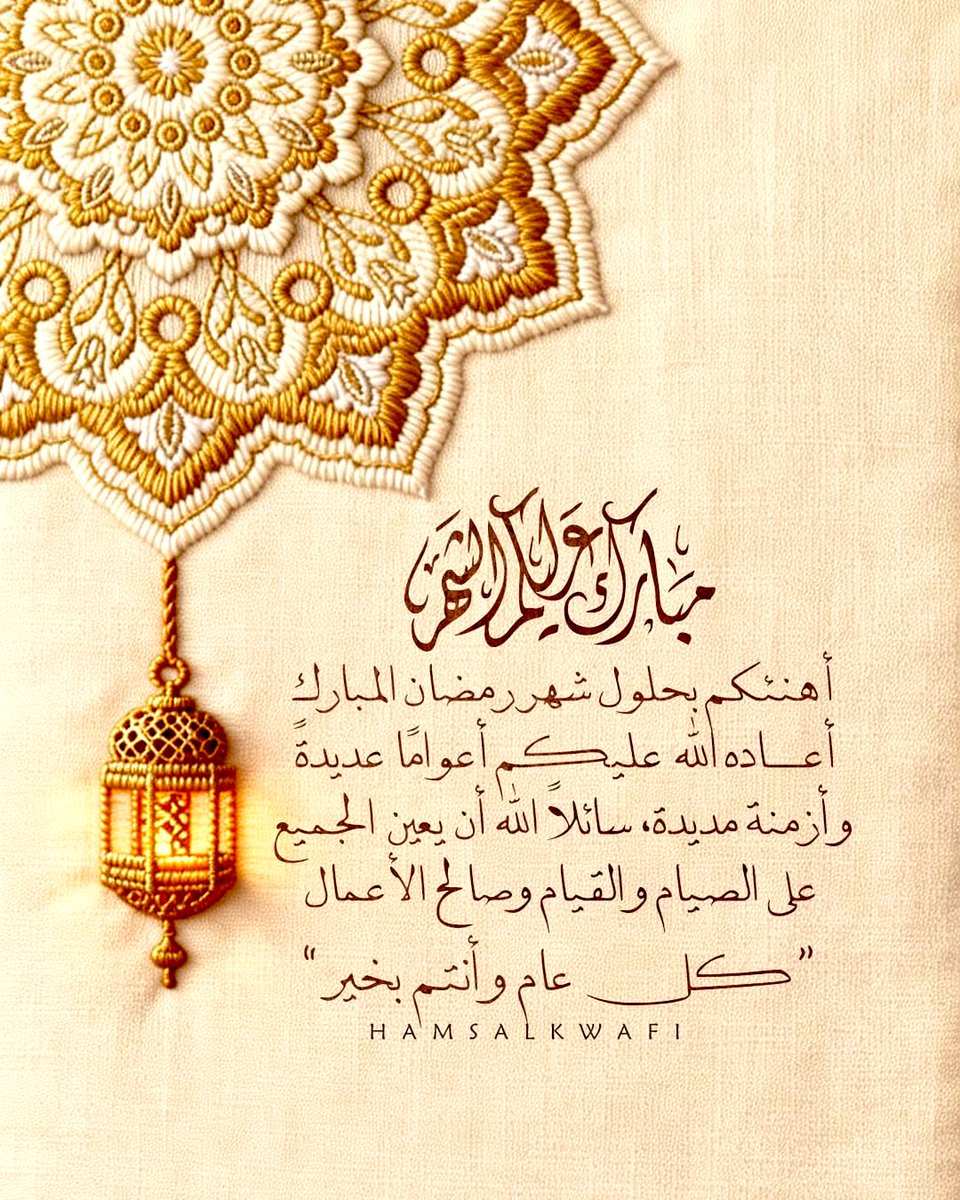 مبارك عليكم الشهر
أهنئكم بحلول شهر رمضان المبارك
أعاده الله عليكم أعوامًا عديدةً
وأزمنة مديدة، سائلاً الله أن يعين الجميع
على الصيام والقيام وصالح الأعمال
"كل عام وأنتم بخير"
HAMSALKWAFI